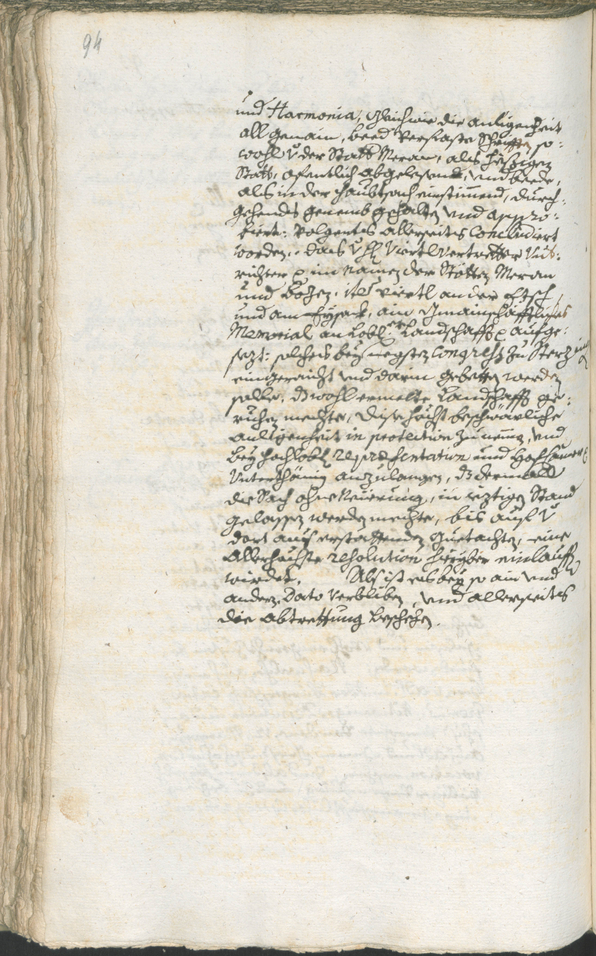 94
und Harmonia, gleichwie die anligenheit
all gemain, beed verfaste Schriften so-
wohl v: der Statt Meran, als hiesiger
Statt, ofentlich abgelesen, und beede,
als in der haubtsach einstimmend, durch-
gehends genemb gehalten, und appro-
biert: volgents allerseits concludiert
worden, dass v: H: Viertlvertretter Unt-
richter p. im namen der Stötten Meran
und Bozen, item viertl an der Etsch,
und am Eysack, ain gmainschafftliches
Memorial an Löbl: Landschafft p. aufge-
sezt: solches bey negsten Congress zu Sterzing
eingeraicht und darin gebetten werden
solle, wohl ermelte Landschafft ge-
ruhen mechte, dise höchst beschwärliche
anligenheit in protection zu nemen, und
bey hochlobl: repraesentation und
Unterthönig anzulangen, dermallen
die Sach ohne Neuerung, in iezigen Stand
gelassen werden mechte, bis auf v:
dort aus erstattenden Guetachten, eine
Allerhöchste resolution hieryber einlauffen
wurdet. Als ist es bey so ain und
andern, Dato verbliben, und allerseits
die Abtrettung beschehen.